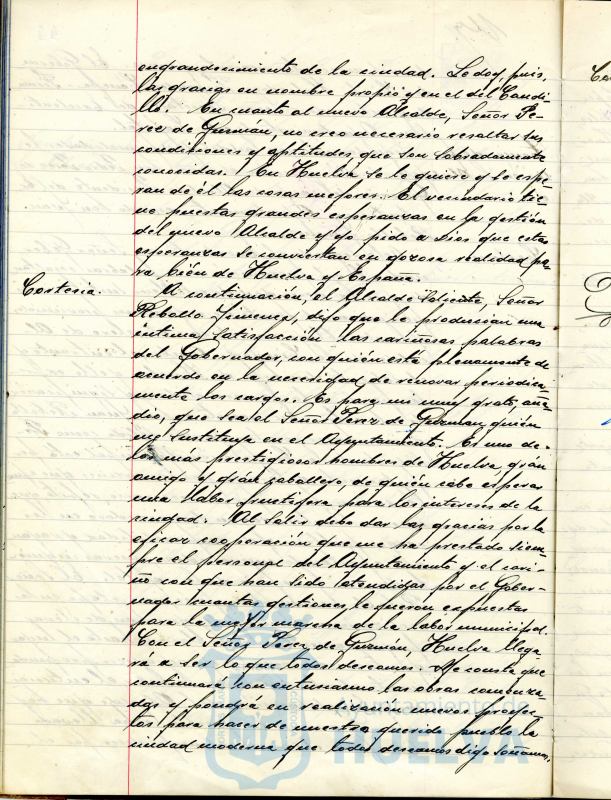 engrandecimiento de la ciudad. Le doy, pues,
las gracias en nombre propio y en el del Caudi-
llo. En cuanto al nuevo Alcalde, Señor Pe-
rez de Guzmán, no creo necesario resaltar sus
condiciones y aptitudes, que son sobradamente
conocidas. En Huelva se le quiere y se espe-
ran de él las cosas mejores. El vecindario tie-
ne puestas grandes esperanzas en la gestión
del nuevo Alcalde y yo pido a Dios que estas
esperanzas se conviertan en gozosa realidad pa-
ra bién de Huelva y España.
Cortesia.
A continuación, el Alcalde saliente, Señor
Rebollo Jimenez, dijo que le producian una
intima satisfacción las cariñosas palabras
del Gobernador, con quién está plenamente de
acuerdo en la necesidad de renovar periodica-
mente los cargos. Es para mi muy grato, aña-
dio, que sea el Señor Perez de Guzman quién
me sustituya en el Ayuntamiento. Es uno de
los más prestigiosos hombres de Huelva, grán
amigo y grán caballero, de quién cabe esperar
una labor fructifera para los intereses de la
ciudad. Al salir debo dar las gracias por la
eficaz cooperación que me ha prestado siem-
pre el personal del Ayuntamiento y el cari-
ño con que han sido atendidas por el Gober-
nador cuantas gestiones le fueron expuestas
para la mejor marcha de la labor municipal.
Con el Señor Perez de Guzmán, Huelva llega
rá a ser lo que todos deseamos. Me consta que
continuará con entusiasmo las obras comenza
das y pondrá en realización nuevos proyec-
tos para hacer de nuestro querido pueblo la
ciudad moderna que todos deseamos digo soñamos.
Ayuntamiento de
HUELVA